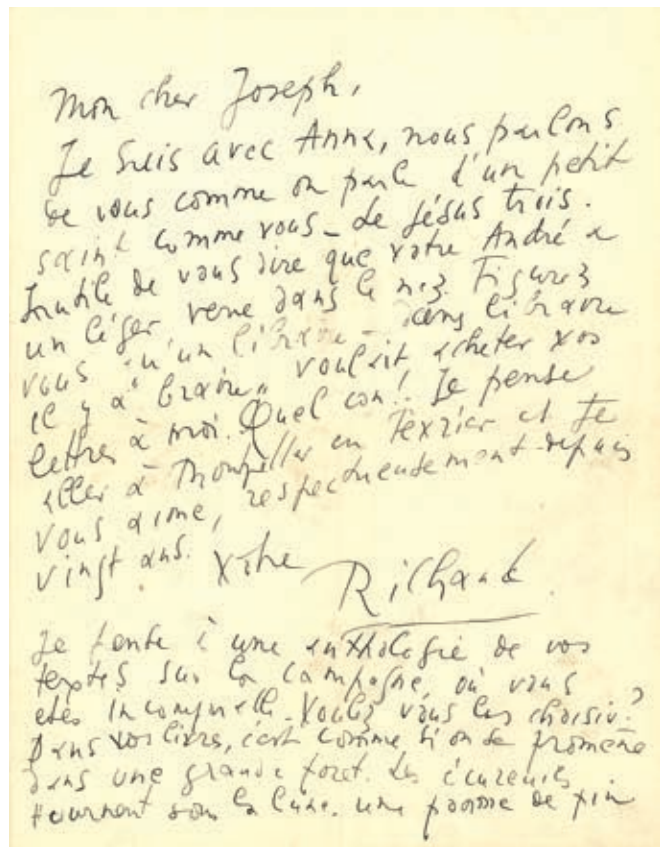 Mon cher Joseph,
Je suis avec Anne, nous parlons
de vous comme on parle d'un petit
saint comme vous - de Jésus trois.
Inutile de vous dire que votre André a
un léger verre dans le nez. Figurez
vous qu'un libraire - dans libraire
il y a "braire" voulait acheter vos
lettres à moi. Quel con! Je pense
aller à Montpellier en février et je
vous aime, respectueusement depuis
vingt ans. Votre
Richaud.
Je pense à une anthologie de vos
textes sur la campagne, où vous
etes incomparable. Voulez vous les choisir?
Dans vos livres, c'est comme si on se promène
dans une grande foret. Les écureuils
tournent sous la lune. une pomme de pin